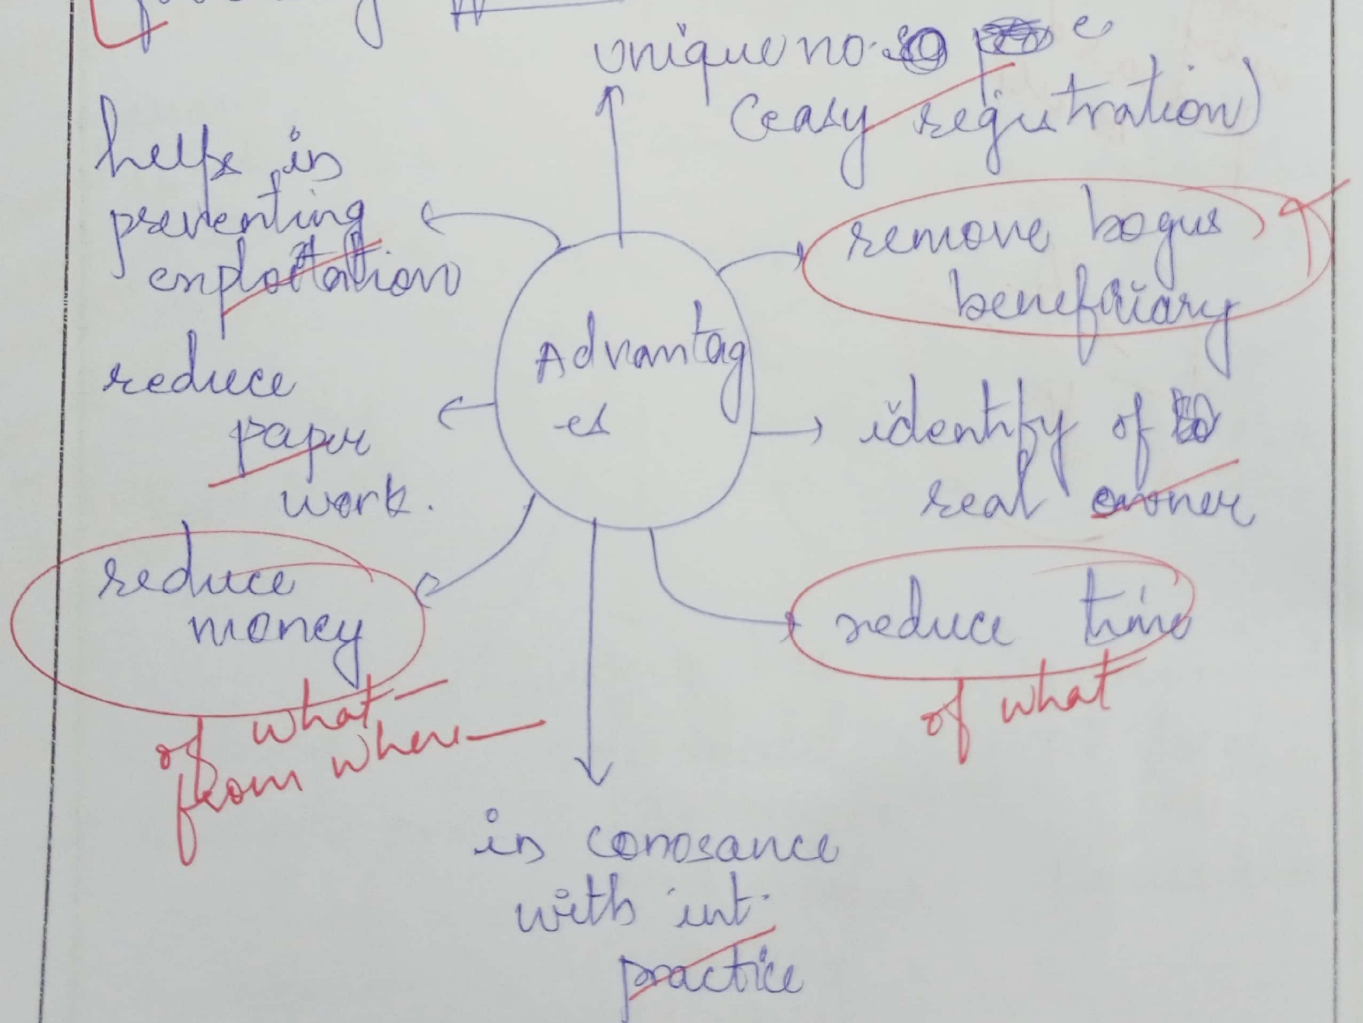 unique no.
(easy registration)
helps in
preventing
exploitation
remove bogus
beneficiary
Advantag
-es
reduce
paper
work.
identify of
real owner
reduce
money
of what
from where
reduce time
of what
in conosance
with int.
practice